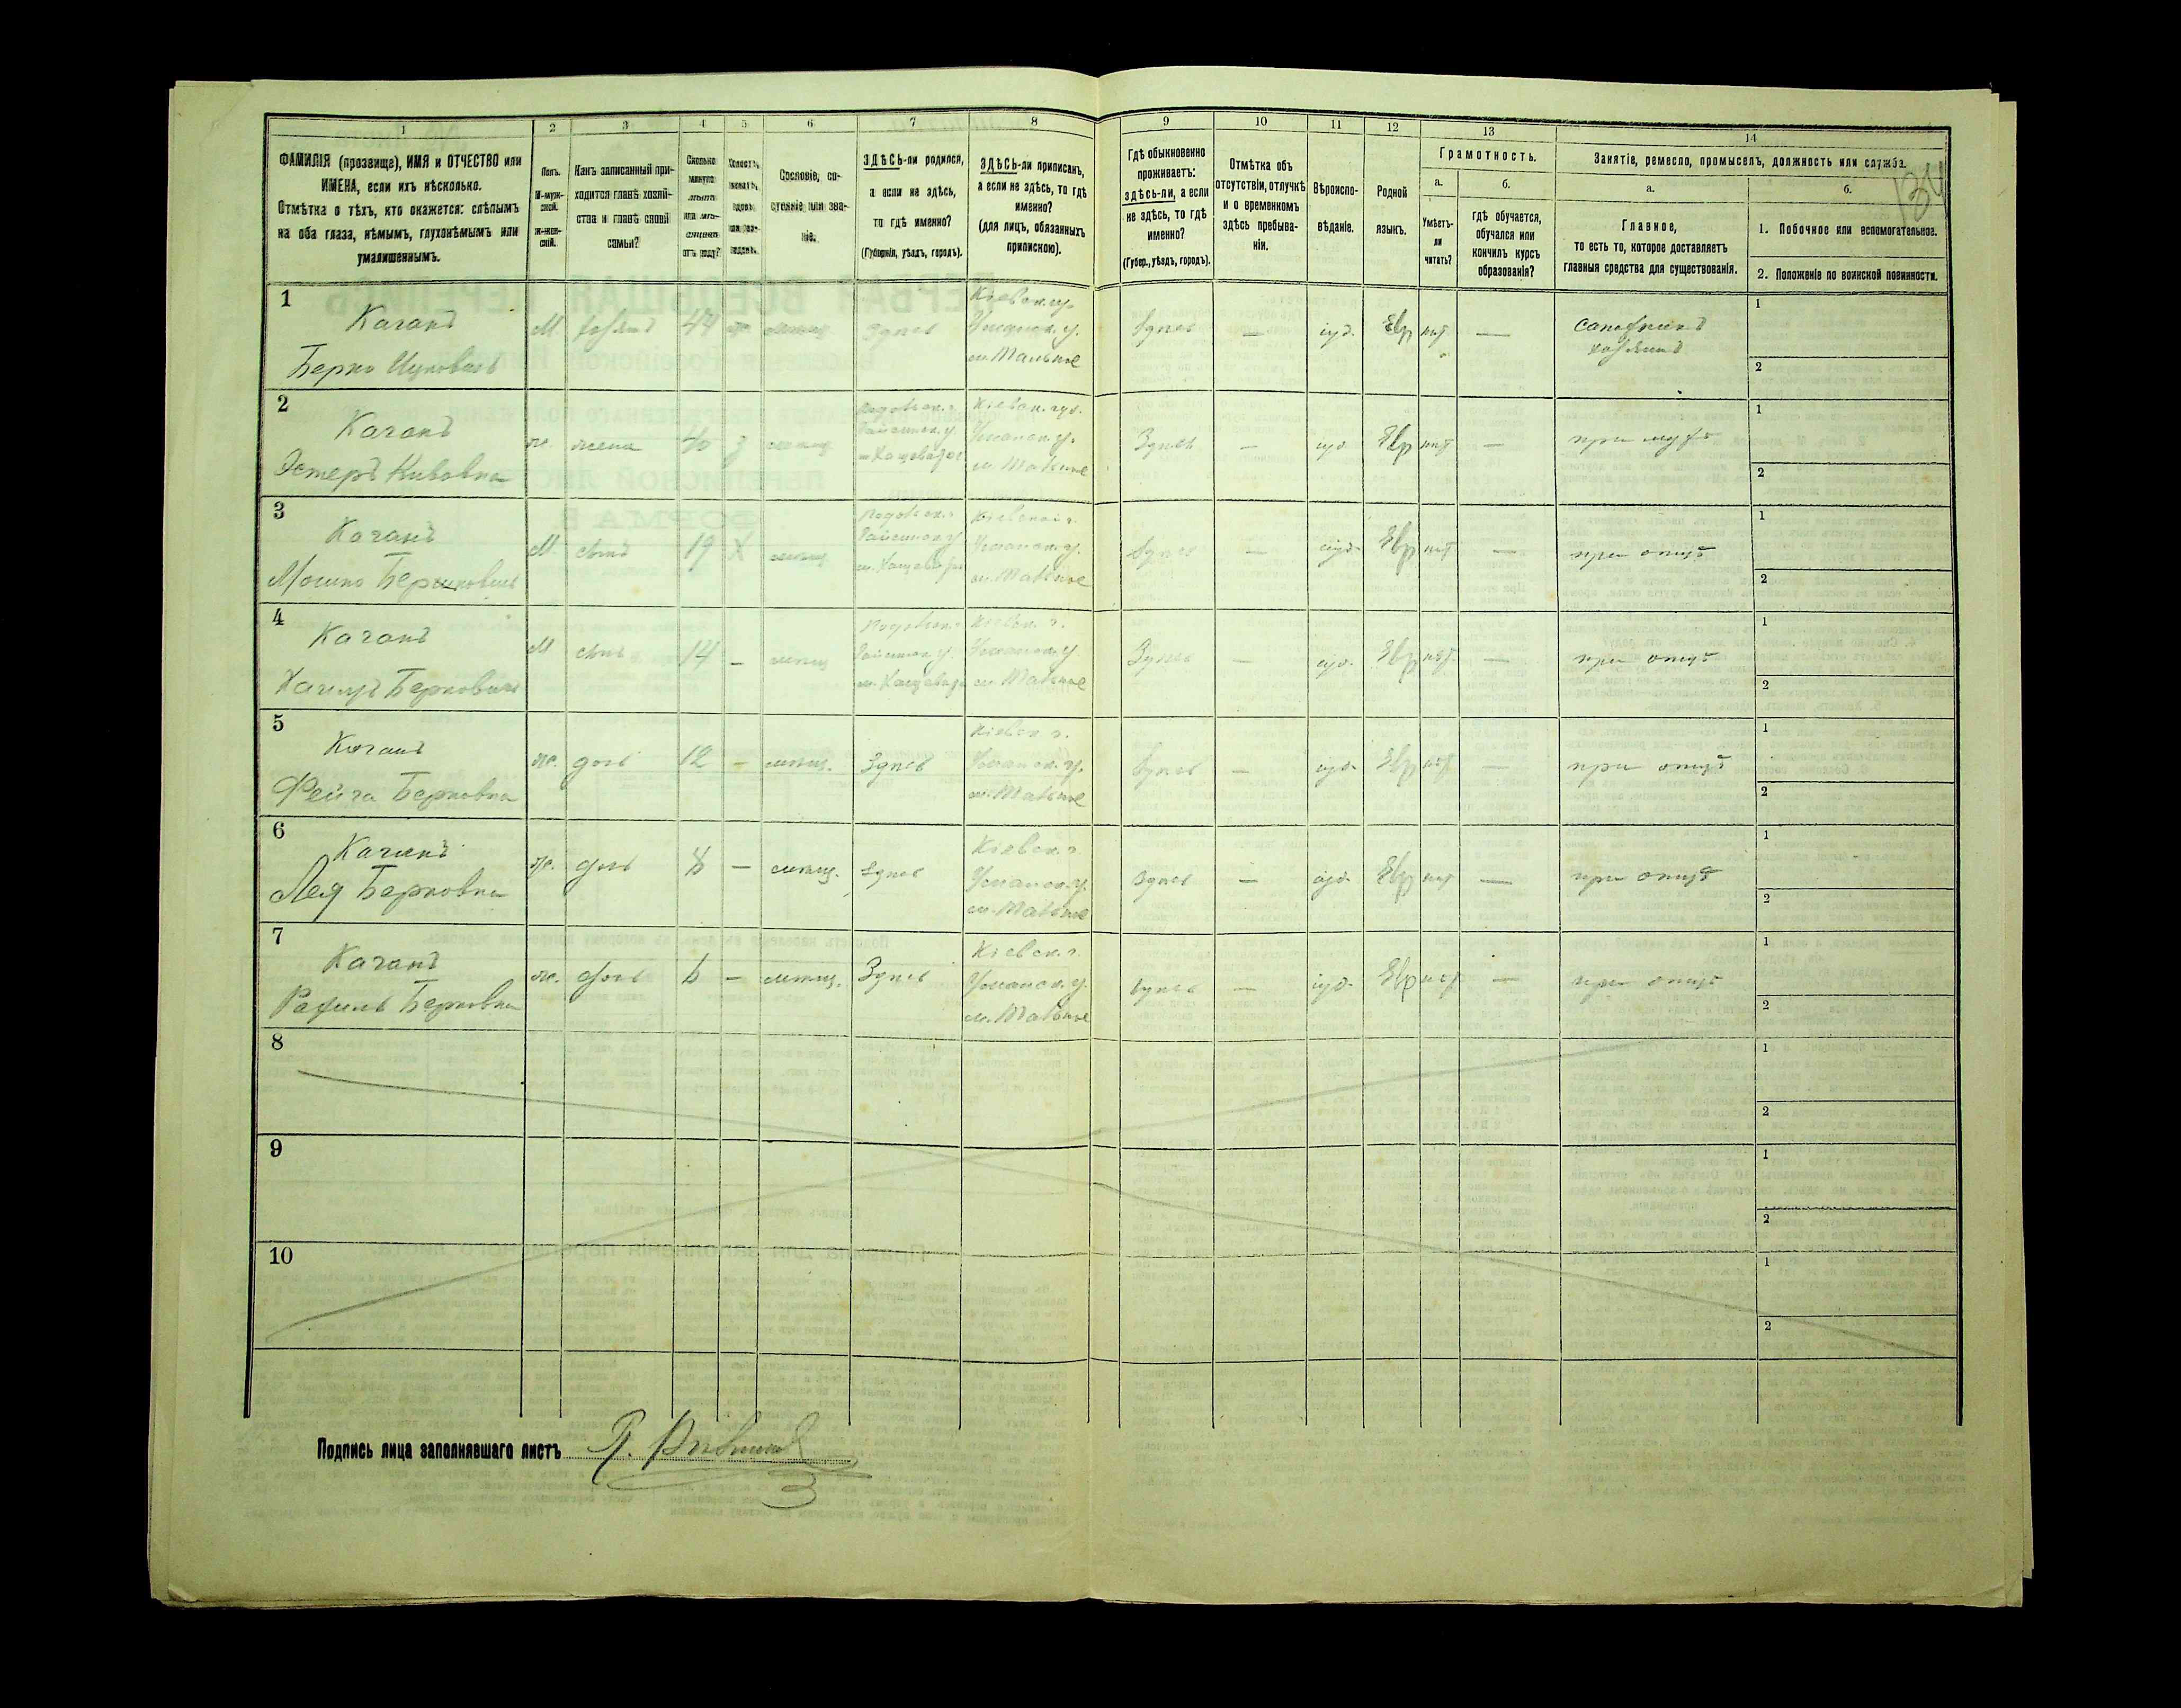 1 2 3 4 5 6 7 8 9 10 11 12 13 14
ФАМИЛІЯ (прозвище), ИМЯ и ОТЧЕСТВО или
ИМЕНА, если ихъ нѣсколько.
Отмѣтка о тѣхъ, кто окажется: слѣпымъ
на оба глаза, нѣмымъ, глухонѣмымъ или
умалишеннымъ.
Полъ.
М-муж-
ской.
Ж-жен-
скій.
Какъ записанный при-
ходится главѣ хозяй-
ства и главѣ своей
семьи?
Сколько
минуло
лѣтъ
или мѣ-
сяцевъ
отъ роду?
Холостъ,
женатъ,
вдовъ
или раз-
веденъ.
Сословіе, со-
стояніе или зва-
ніе.
ЗДѢСЬ-ли родился,
а если не здѣсь,
то гдѣ именно?
(Губернія, уѣздъ, городъ).
ЗДѢСЬ-ли приписанъ,
а если не здѣсь, то гдѣ
именно?
(для лицъ, обязанныхъ
припискою).
Гдѣ обыкновенно
проживаетъ:
здѣсь-ли, а если
не здѣсь, то гдѣ
именно?
(Губер., уѣздъ, городъ).
Отмѣтка объ
отсутствіи, отлучкѣ
и о временномъ
здѣсь пребыва-
ніи.
Вѣроиспо-
вѣданіе.
Родной
языкъ.
Грамотность.
а.
Умѣетъ-
ли
читать?
б.
гдѣ обучается,
обучался или
кончилъ курсъ
образованія?
Занятіе, ремесло, промыселъ, должность или служба.
а.
Главное,
то есть то, которое доставляетъ
главныя средства для существованія.
б.
1. Побочное или вспомогательное.
2. Положеніе по воинской повинности.
1
Каганъ
Берко Ицковичъ
М 44 здѣсь
Кіевск. г.
Уманск. у.
м. Тальное
Здѣсь — іуд. Евр нѣт —
сапожникъ
хозяинъ
1
2
2
Каганъ
Эстеръ Кивовна
ж. жена 40 з
Подольск. г.
Гайсинск. у.
Кіевск. губ.
Уманск. у.
м. Тальное
Здѣсь — іуд Евр нѣт — при мужѣ
1
2
3
Каганъ
Мошко Берковичъ
М. сынъ 19 Х мѣщ.
Подольск. г.
Гайсинск. у
Кіевской г.
Уманск. у.
м. Тальное
Здѣсь — іуд. Евр нѣт. — при отцѣ
1
2
4
Каганъ
Берковичъ
М сынъ 14 — мѣщ
Подольск. г.
Гайсинск. у.
Кіевск. г.
Уманск. у
м. Тальное
Здѣсь — іуд. Евр нѣт. — при отцѣ
1
2
5
Каганъ
Фейга Берковна
ж. дочь 12 — мѣщ. Здѣсь
Кіевск г.
Уманск. у.
м. Тальное
Здѣсь — іуд. Евр нѣт — при отцѣ
1
2
6
Каганъ
Лея Берковна
ж. дочь 8 — мѣщ. Здѣсь
Кіевск. г.
Уманск. у.
м. Тальное
Здѣсь — іуд. Евр нѣт — при отцѣ
1
2
7
Каганъ
Рахиль Берковна
ж. дочь 6 — мѣщ. Здѣсь
Кіевск. г.
Уманск. у.
м. Тальное
Здѣсь — іуд. Евр нѣт — при отцѣ
1
2
8
1
2
9
1
2
10
1
2
Подпись лица заполнявшаго листъ